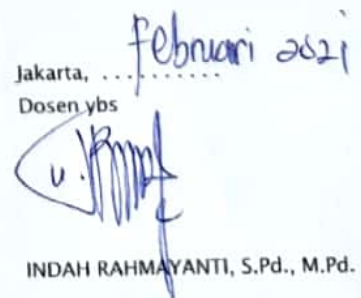 Jakarta, .......... Februari 2021
Dosen ybs
INDAH RAHMAYANTI, S.Pd., M.Pd.